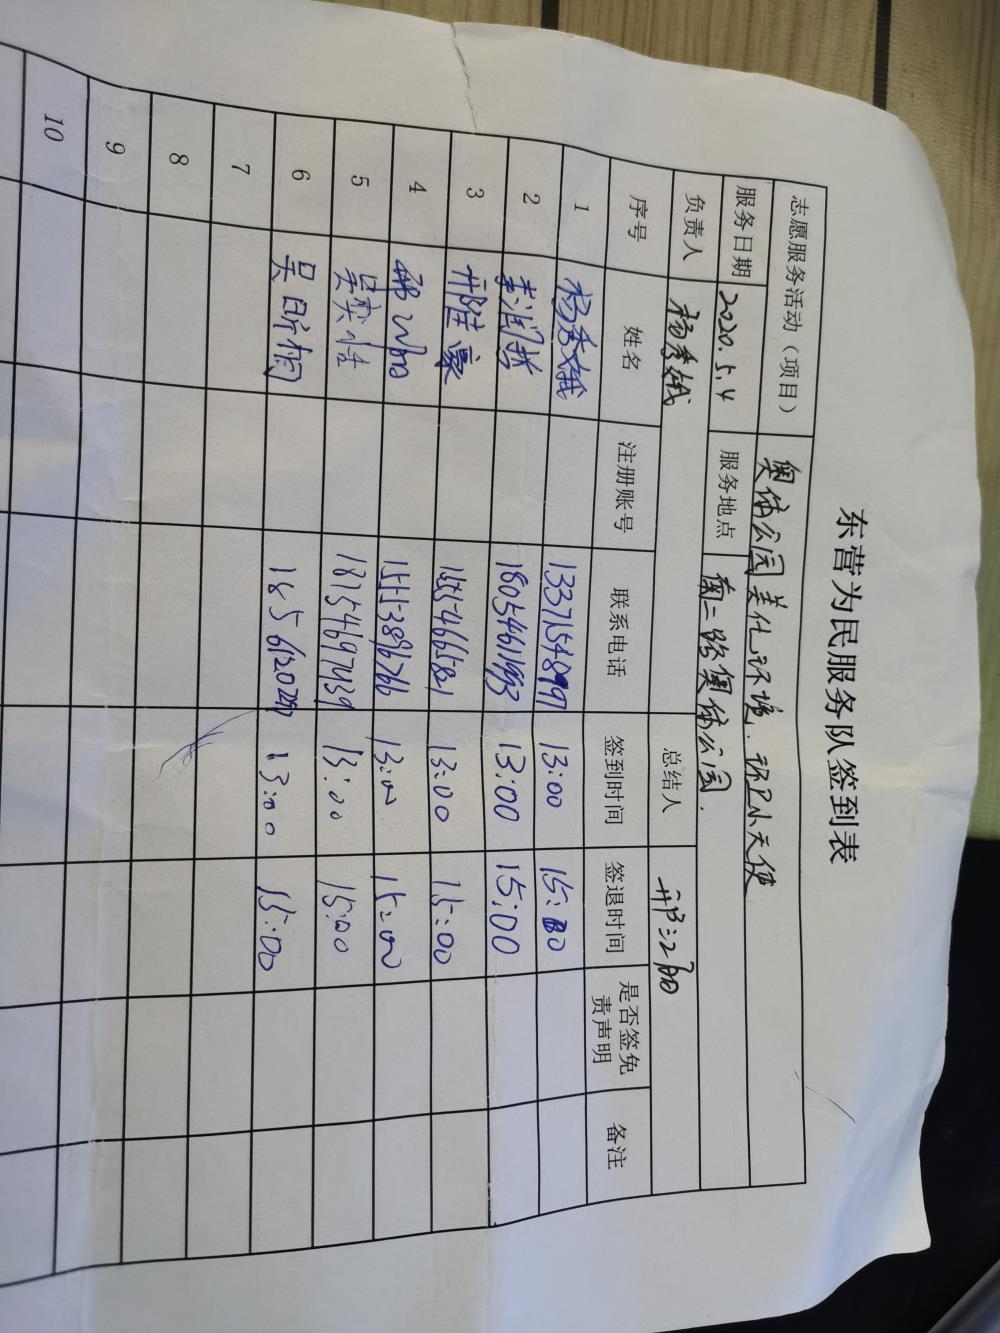 东营为民服务队签到表
志愿服务活动（项目） 奥体公园美化环境、环卫小天使
服务日期 2020.5.4 服务地点 南二路奥体公园.
负责人 杨秀娥 总结人
序号 姓名 注册账号 联系电话 签到时间 签退时间 是否签免责声明 备注
1 杨秀娥 13371548997 13:00 15:00
2 18054611953 13:00 15:00
3 15554665821 13:00 15:00
4 15553896766 13:00 15:00
5 18754697439 13:00 15:00
6 吴昕桐 13:00 15:00
7
8
9
10